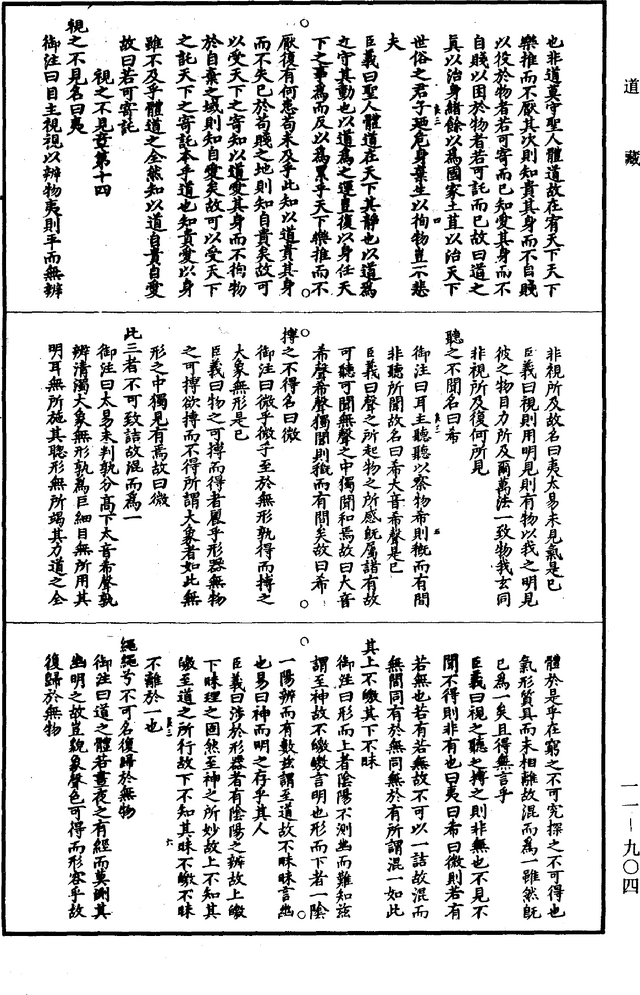 道藏
也非道真守聖人體道故在宥天下天下
樂推而不厭其次則知貴其身而不自賤
以役於物者若可寄而已知愛其身而不
自賤以困於物者若可託而已故曰道之
真以治身緒餘以為國家土苴以治天下
世俗之君子廼危身棄生以徇物豈不悲
夫
臣義曰聖人體道在天下其靜也以道為
之守其動也以道為之運豈復以身任天
下之事為而反以為累乎天下樂推而不
厭復有何患苟未及乎此知以道貴其身
而不失已於苟賤之地則知自貴矣故可
以受天下之寄知以道愛其身而不徇物
於自棄之域則知自愛矣故可以受天下
之託天下之寄託本乎道也知貴愛以身
雖不及乎體道之全然知以道自貴自愛
故曰若可寄託
視之不見章第十四
視之不見名曰夷
御注曰目主視視以辨物夷則平而無辨
非視所及故名曰夷太易未見氣是已
臣義曰視則用明見則有物以我之明見
彼之物目力所及爾萬法一致物我玄同
非視所及復何所見
聽之不聞名曰希
御注曰耳主聽聽以察物希則概而有間
非聽所聞故名曰希大音希聲是已
臣義曰聲之所起物之所感既屬諸有故
可聽可聞無聲之中獨聞和焉故曰大音
希聲希聲獨聞則概而有間矣故曰希
搏之不得名曰微
御注曰微乎微乎至於無形孰得而搏之
大象無形是已
臣義曰物之可搏而得者麗乎形器無物
之可搏欲搏而不得所謂大象者如此無
形之中獨見有焉故曰微
此三者不可致詰故混而為一
御注曰太易未判孰分高下大音希聲孰
辨清濁大象無形孰為巨細目無所用其
明耳無所施其聰形無所竭其力道之全
體於是乎在窮之不可究探之不可得也
氣形質具而未相離故混而為一雖然既
已為一矣且得無言乎
臣義曰視之聽之搏之則非無也不見不
聞不得則非有也曰夷曰希曰微則若有
若無也若有若無故不可以一詰故混而
無間同有於無同無於有所謂混一如此
其上不皦其下不昧
御注曰形而上者陰陽不測幽而難知茲
謂至神故不皦皦言明也形而下者一陰
一陽辨而有數茲謂至道故不昧昧言幽
也易曰神而明之存乎其人
臣義曰涉於形器者有陰陽之辨故上皦
下昧理之固然至神之所妙故上不知其
皦至道之所行故下不知其昧不皦不昧
不離於一也
繩繩兮不可名復歸於無物
御注曰道之體若晝夜之有經而莫測其
幽明之故豈貌象聲色可得而形容乎故
復歸於無物
一一—九〇四